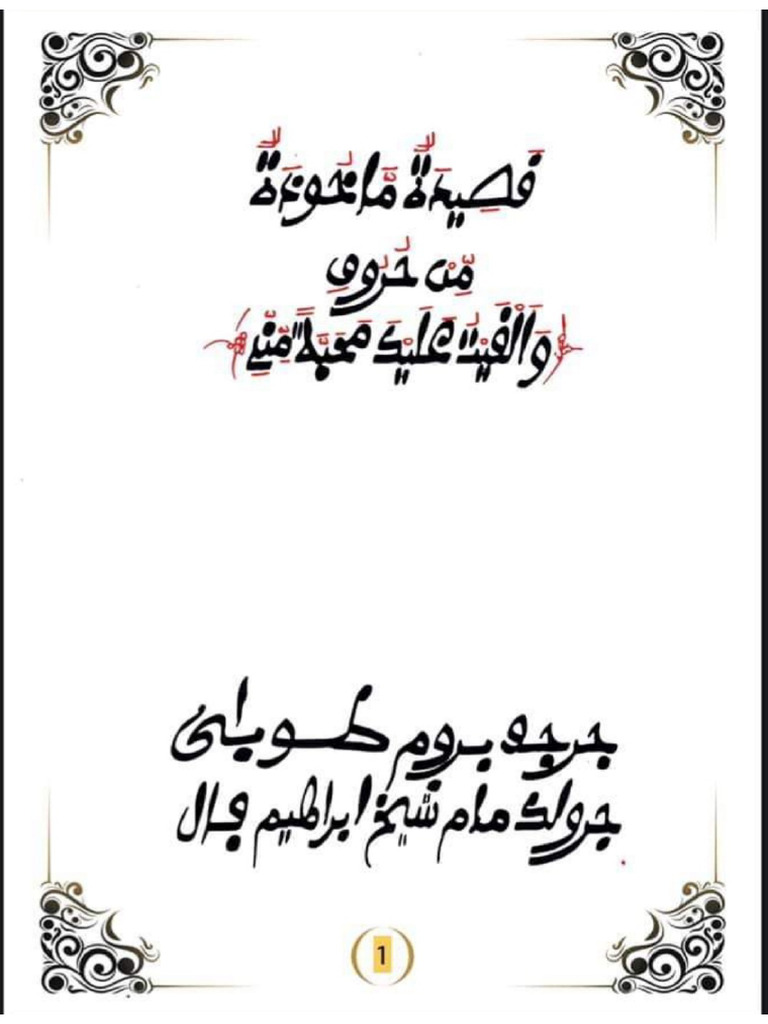 قَصِيدَةٌ مَّأخُوذَةٌ
مِّنْ حُرُوفِ
﴿وَأَلْقَيْتُ عَلَيْكَ مَحَبَّةً مِّنِّي﴾
جرجه بروم طوبان
جرولك مام شيخ ابراهيم فال
1